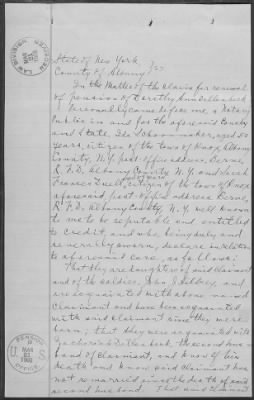 State of New York
County of Albany } ss
In the Matter of the claim for renewal
of pension of Dorothy Ann
Personally came before me, a Notary
Public in and for the aforesaid County
and State, Ida Schoonmaker, aged 50
years, citizen of the town of Knox, Albany
County, N.Y. post office address, Berne,
R.F.D. Albany County, N.Y. and Sarah
Frances citizen of the town of Knox
aforesaid, post office address, Berne,
R.F.D. Albany County, N.Y. well known
to me to be reputable and entitled
to credit, and who, being duly and
severally sworn, declare in relation
to aforesaid case, as follows:
That they are daughters of said claimant
and of the soldier, John and
are acquainted with above named
Claimant and have been acquainted
with said claimant since they were
born; that they were acquainted with
the second hus-
band of claimant, and know of his
death and know said claimant has
not remarried since the death of said
second husband. That said claimant
LAW DIVISION
PENSION
U S
OFFICE